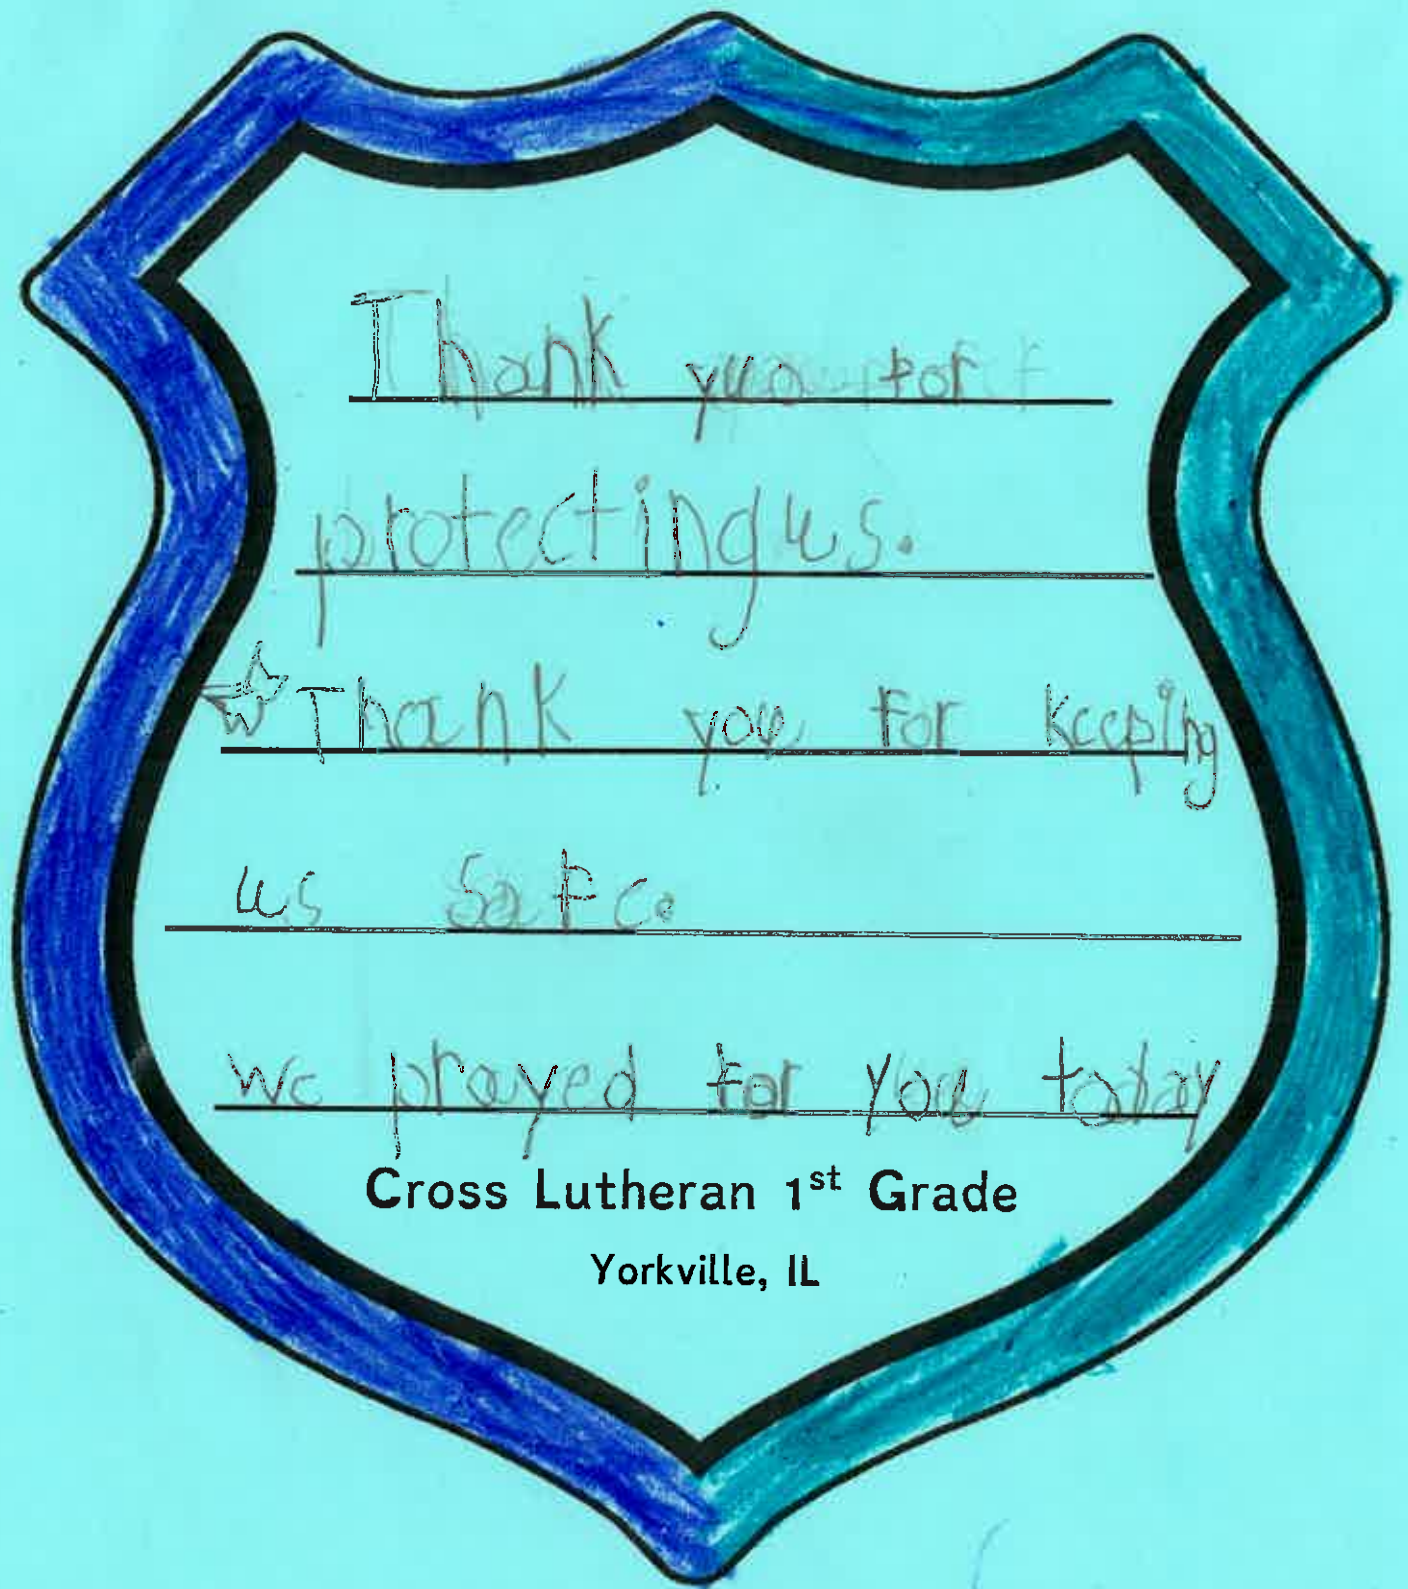 Thank you for
protecting us.
Thank you for keeping
us safe.
we prayed for you today
Cross Lutheran 1st Grade
Yorkville, IL